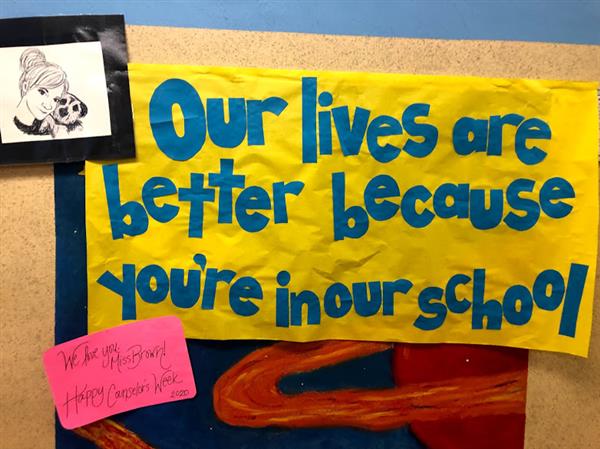 Our lives are
better because
you're in our school
We love you
Miss Brown!
Happy Counselor's Week
2020